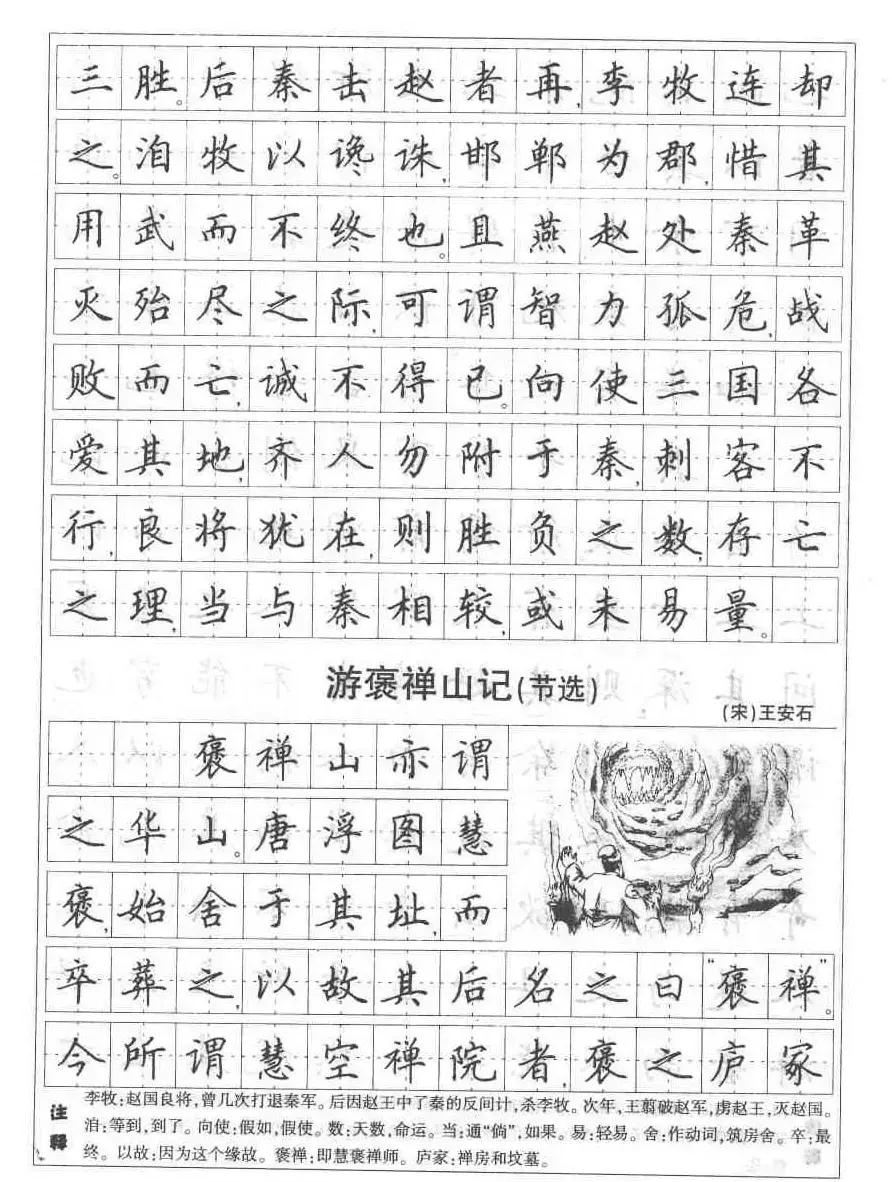 三胜。后秦击赵者再,李牧连却
之。洎牧以谗诛,邯郸为郡,惜其
用武而不终也。且燕赵处秦革
灭殆尽之际,可谓智力孤危,战
败而亡,诚不得已。向使三国各
爱其地,齐人勿附于秦,刺客不
行,良将犹在,则胜负之数,存亡
之理,当与秦相较,或未易量。
游褒禅山记(节选)
(宋)王安石
褒禅山亦谓
之华山。唐浮图慧
褒,始舍于其址,而
卒葬之,以故其后名之曰“褒禅”。
今所谓慧空禅院者,褒之庐冢
注释
李牧:赵国良将,曾几次打退秦军。后因赵王中了秦的反间计,杀李牧。次年,王翦破赵军,虏赵王,灭赵国。
洎:等到,到了。向使:假如,假使。数:天数,命运。当:通“倘”,如果。易:轻易。舍:作动词,筑房舍。卒:最
终。以故:因为这个缘故。褒禅:即慧褒禅师。庐冢:禅房和坟墓。